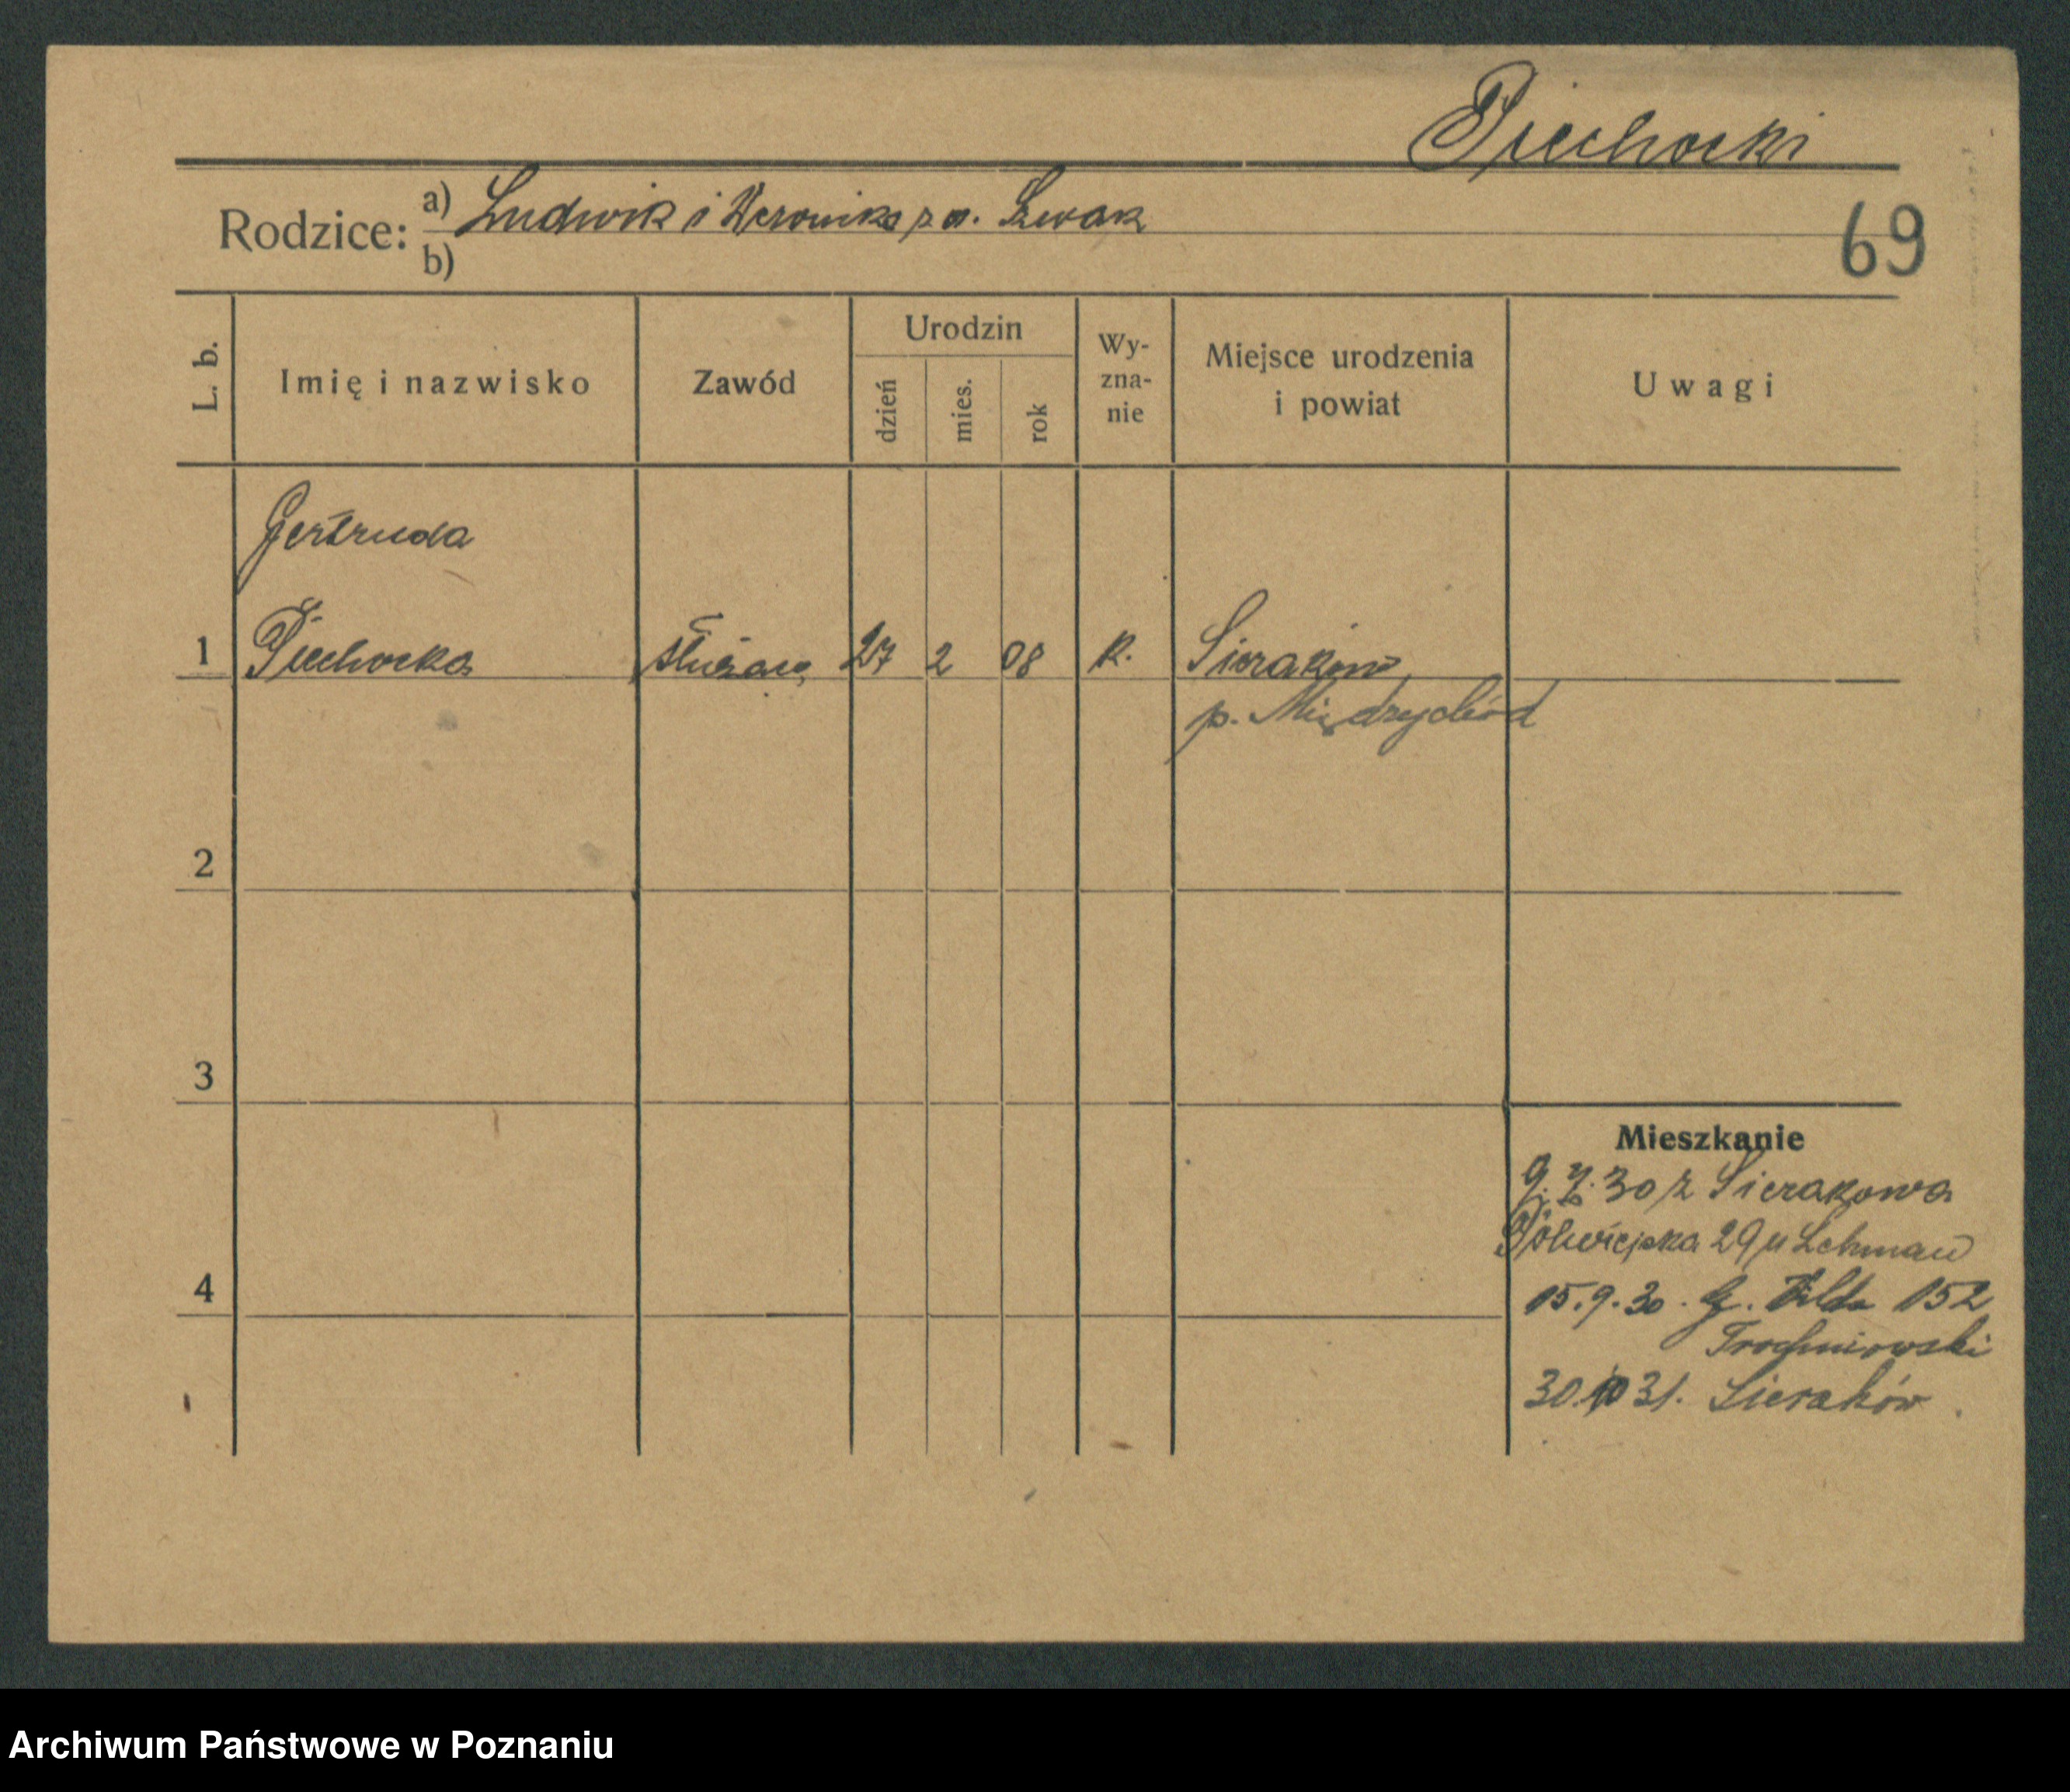 Piechocki
Rodzice: a) Ludwik i Weronika z d. Szwak
b)
69
L. b.
Imię i nazwisko
Zawód
Urodzin
dzień
mies.
rok
Wy-
zna-
nie
Miejsce urodzenia
i powiat
Uwagi
Gertruda
1 Piechocka służąca 27 2 08 k. Sieraków
p. Międzychód
2
3
4
Mieszkanie
30 z Sierakowa
Półwiejska 29 u Lehman
15.9.30. G. Wilda 152
30.10 31. Sieraków
Archiwum Państwowe w Poznaniu